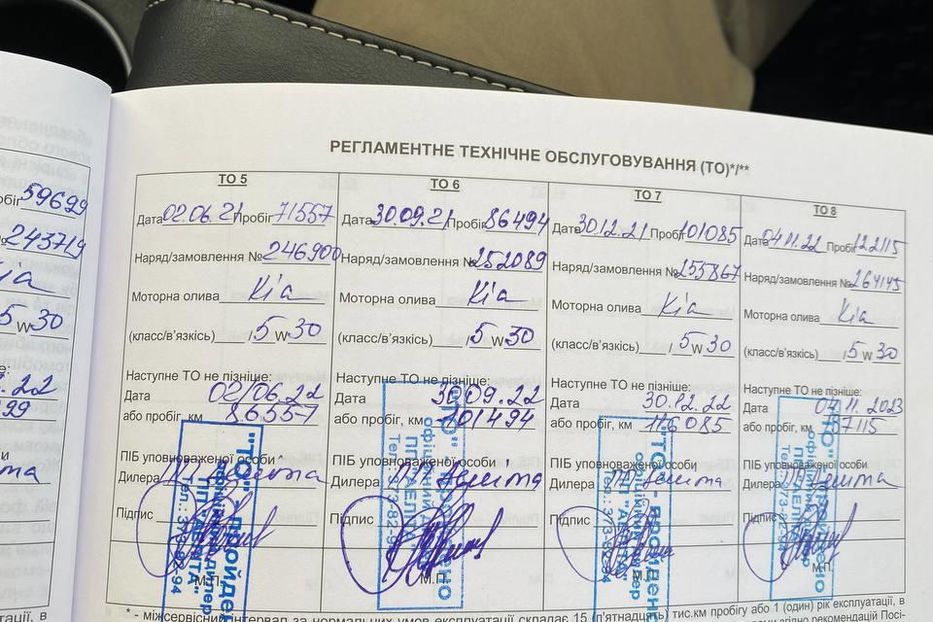 РЕГЛАМЕНТНЕ ТЕХНІЧНЕ ОБСЛУГОВУВАННЯ (ТО)*/**
59699
243719
5 W 30
ТО 5
Дата 02.06.21 Пробіг 71557
Наряд/замовлення № 246900
Моторна олива Kia
(класс/в'язкість) 5 W 30
Наступне ТО не пізніше:
Дата 02/06.22
або пробіг, км 86557
ПІБ уповноваженої особи
Дилера ПП Аеліта
Підпис
М.П.
"ТО" - пройдено
офіційний дилер
ПП "АЕЛІТА"
Тел.: 373-82-94
ТО 6
Дата 30.09.21 Пробіг 86494
Наряд/замовлення № 252089
Моторна олива Kia
(класс/в'язкість) 5 W 30
Наступне ТО не пізніше:
Дата 30.09.22
або пробіг, км 101494
ПІБ уповноваженої особи
Дилера ПП Аеліта
Підпис
М.П.
ТО 7
Дата 30.12.21 Пробіг 101085
Наряд/замовлення № 255867
Моторна олива Kia
(класс/в'язкість) 5 W 30
Наступне ТО не пізніше:
Дата 30.12.22
або пробіг, км 116085
ПІБ уповноваженої особи
Дилера ПП Аеліта
Підпис
"ТО" - пройдено
офіційний дилер
ПП "АЕЛІТА"
Тел.: 373-82-94
ТО 8
Дата 04.11.22 Пробіг 122115
Наряд/замовлення № 264145
Моторна олива Kia
(класс/в'язкість) 5 W 30
Наступне ТО не пізніше:
Дата 04.11.2023
або пробіг, км 137115
ПІБ уповноваженої особи
Дилера ПП Аеліта
Підпис
М.П.
* - міжсервісний інтервал за нормальних умов експлуатації складає 15 (п'ятнадцять) тис.км пробігу або 1 (один) рік експлуатації, в